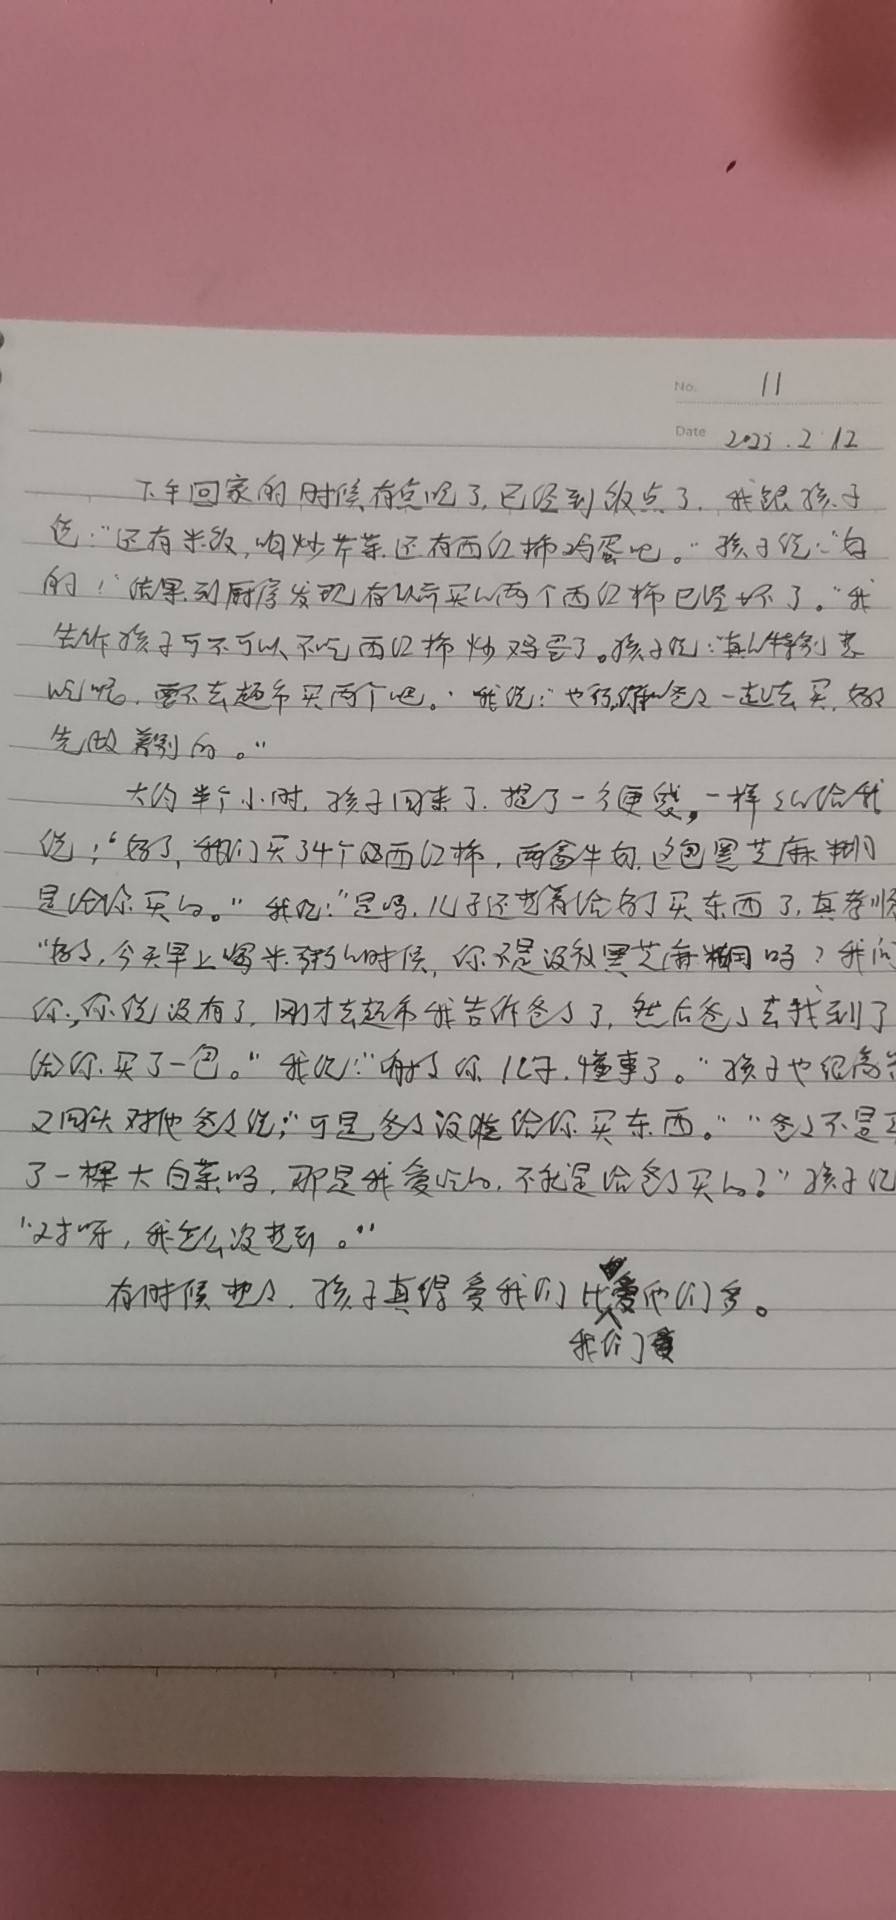 No. 11
Date 2025.2.12
下午回家的时候有点晚了,已经到饭点了,我跟孩子
说:"还有米饭,咱炒芹菜还有西红柿鸡蛋吧。"孩子说:"好
的!"结果到厨房发现存以前买的两个西红柿已经坏了。"我
告诉孩子可不可以不吃西红柿炒鸡蛋了。孩子说:"真的特别想
吃呢,要不去超市买两个吧。"我说:"也行,你和爸爸一起去买,妈妈
先做着别的。"
大约半个小时,孩子回来了,提了一个便袋,一样样的给我
说:"妈妈,我们买了4个西红柿,两盒牛奶,这包黑芝麻糊
是给你买的。"我说:"是吗,儿子还想着给妈妈买东西了,真孝顺
"妈妈,今天早上喝米粥的时候,你不是没放黑芝麻糊吗?我问
你,你说没有了,刚才去超市我告诉爸爸了,然后爸爸去找到了
给你买了一包。"我说:"谢谢你,儿子,懂事了。"孩子也很高兴
又回头对他爸爸说:"可是爸爸没谁给你买东西。""爸爸不是买
了一棵大白菜吗,那是我爱吃的,不就是给爸爸买的?"孩子说
"对呀,我怎么没想到。"
有时候想想,孩子真得爱我们比我们爱他们多。